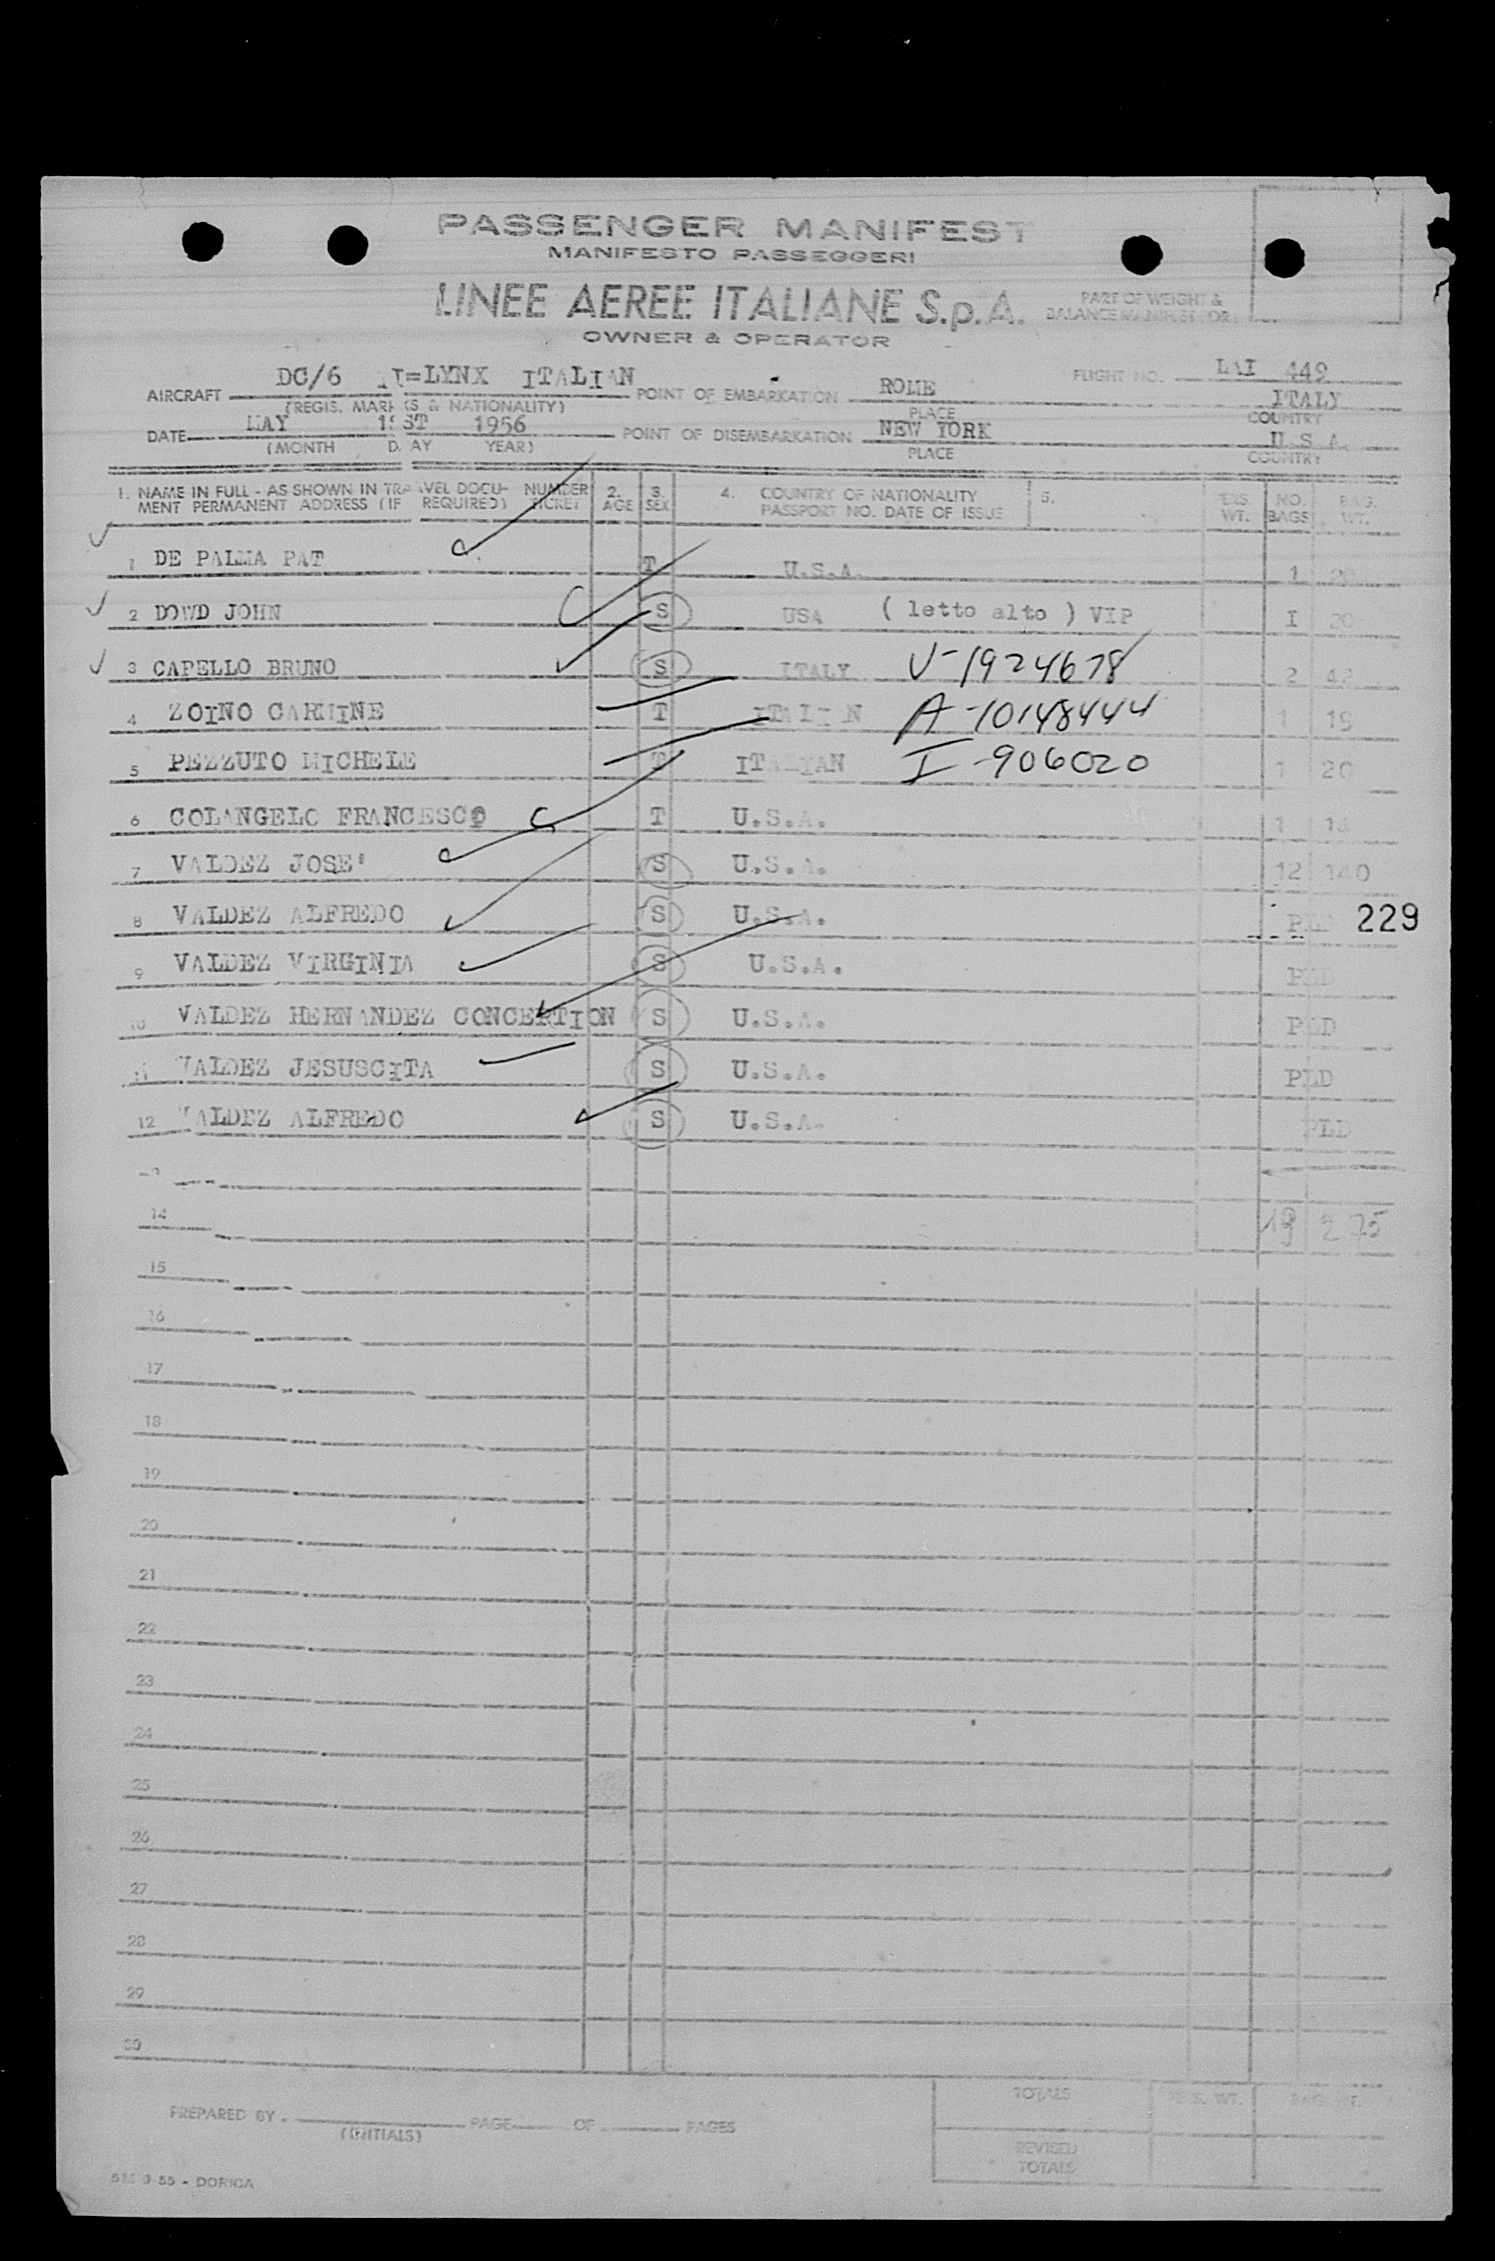 PASSENGER MANIFEST
MANIFESTO PASSEGGERI
LINEE AEREE ITALIANE S.p.A.
OWNER & OPERATOR
PART OF WEIGHT &
AIRCRAFT DC/6 =LYNX ITALIAN POINT OF EMBARKATION ROME FLIGHT NO. LAI 449
(REGIS. MARKS & NATIONALITY) PLACE ITALY
COUNTRY
DATE MAY 1ST 1956 POINT OF DISEMBARKATION NEW YORK U.S.A.
(MONTH DAY YEAR) PLACE COUNTRY
1. NAME IN FULL - AS SHOWN IN TRAVEL DOCU- NUMBER 2. 3. 4. COUNTRY OF NATIONALITY 5. PERS. NO. BAG.
MENT PERMANENT ADDRESS (IF REQUIRED) TICKET AGE SEX PASSPORT NO. DATE OF ISSUE WT. BAGS WT.
1 DE PALMA PAT T U.S.A. 1 20
2 DOWD JOHN S USA ( letto alto ) VIP I 20
3 CAPELLO BRUNO S ITALY V-1924678 2 42
4 ZOINO CARMINE T ITALIAN A-10148444 1 19
5 PEZZUTO MICHELE T ITALIAN I-906020 1 20
6 COLANGELO FRANCESCO T U.S.A. 1
7 VALDEZ JOSE' S U.S.A. 12 140
8 VALDEZ ALFREDO S U.S.A. PLD 229
9 VALDEZ VIRGINIA S U.S.A. PLD
10 VALDEZ HERNANDEZ CONCERTION S U.S.A. PLD
11 VALDEZ JESUSCITA S U.S.A. PLD
12 VALDEZ ALFREDO S U.S.A. PLD
14 19 275
15
16
17
18
19
20
21
22
23
24
25
26
27
28
29
30
TOTALS PERS. WT. BAG. WT.
PREPARED BY PAGE OF PAGES
(INITIALS)
REVISED
TOTALS
55 - DORICA